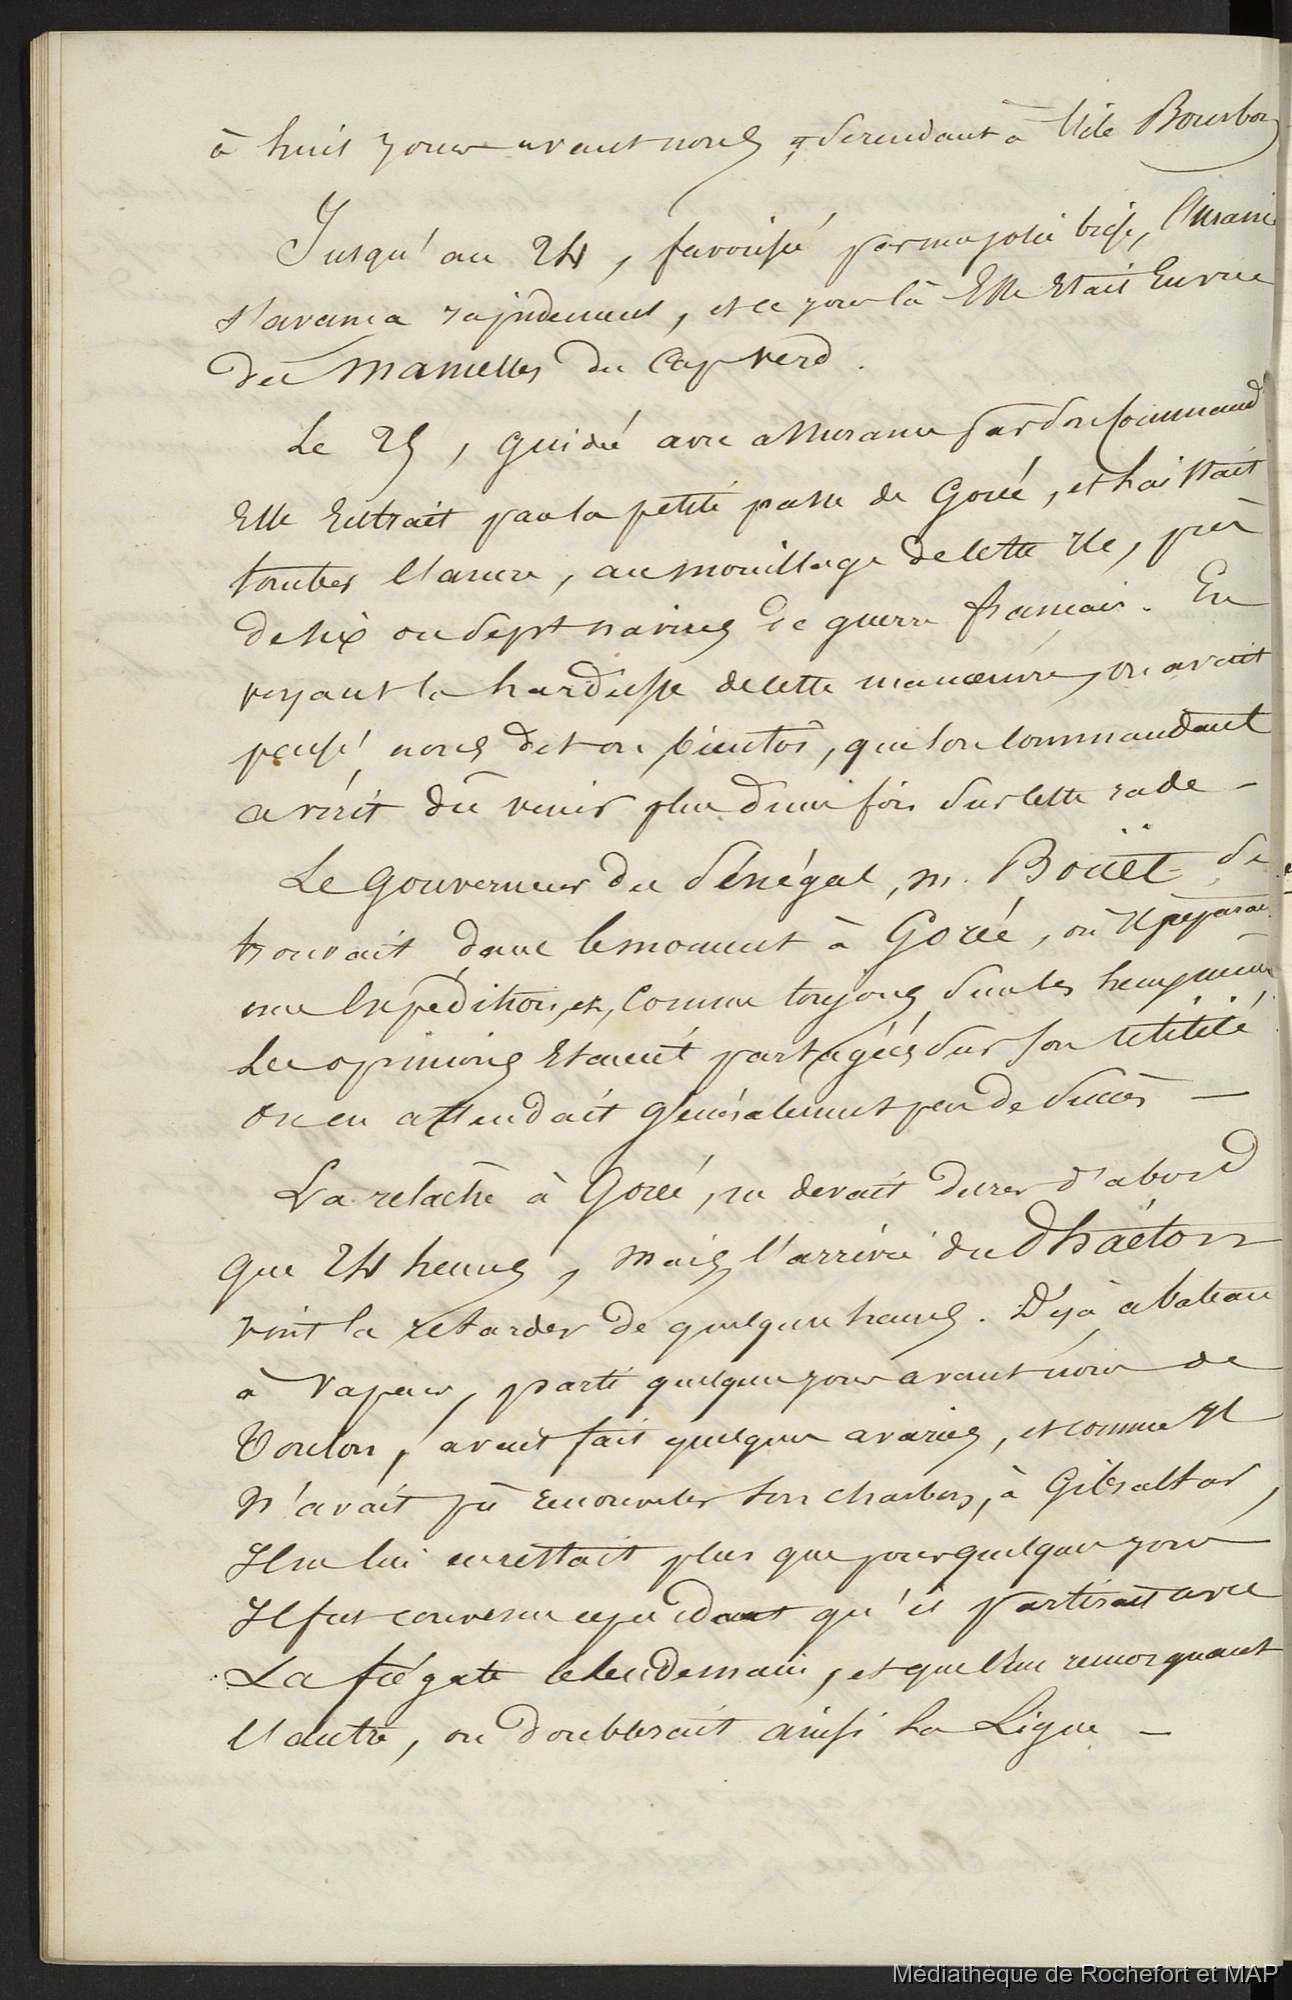 à huit jours avant nous, se rendant à l'île Bourbon
Jusqu'au 24, favorisée par une jolie brise, l'Uranie
s'avança rapidement, et ce jour là Elle Etait En vue
des Mamelles du Cap Verd.
Le 25, guidée avec assurance par son Command.t
Elle Entrait par la petite passe de Gorée, et laissait
tomber l'ancre, au mouillage de cette Ile, près
de six ou sept navires de guerre français. En
voyant la hardiesse de cette manœuvre, on avait
pensé, nous dit on bientôt, que son commandant
avait dû venir plus d'une fois sur cette rade –
Le Gouverneur du Sénégal, M. Bouët se
trouvait dans le moment à Gorée, où Il préparait
une Expédition, et, comme toujours,
les opinions Etaient partagées sur son utilité
on en attendait généralement peu de succès –
La relâche à Gorée, ne devait durer d'abord
que 24 heures, mais l'arrivée du Phaëton
vint la retarder de quelques heures. Déjà ce bateau
à vapeur, parti quelques jours avant nous de
Toulon, avait fait quelques avaries, et comme Il
n'avait pû renouveler son charbon, à Gibraltar,
Il ne lui en restait plus que pour quelques jours
Il fut convenu cependant qu'il partirait avec
La frégate le lendemain, et que l'un remorquant
l'autre, on doublerait ainsi la Ligne –
Médiathèque de Rochefort et MAP